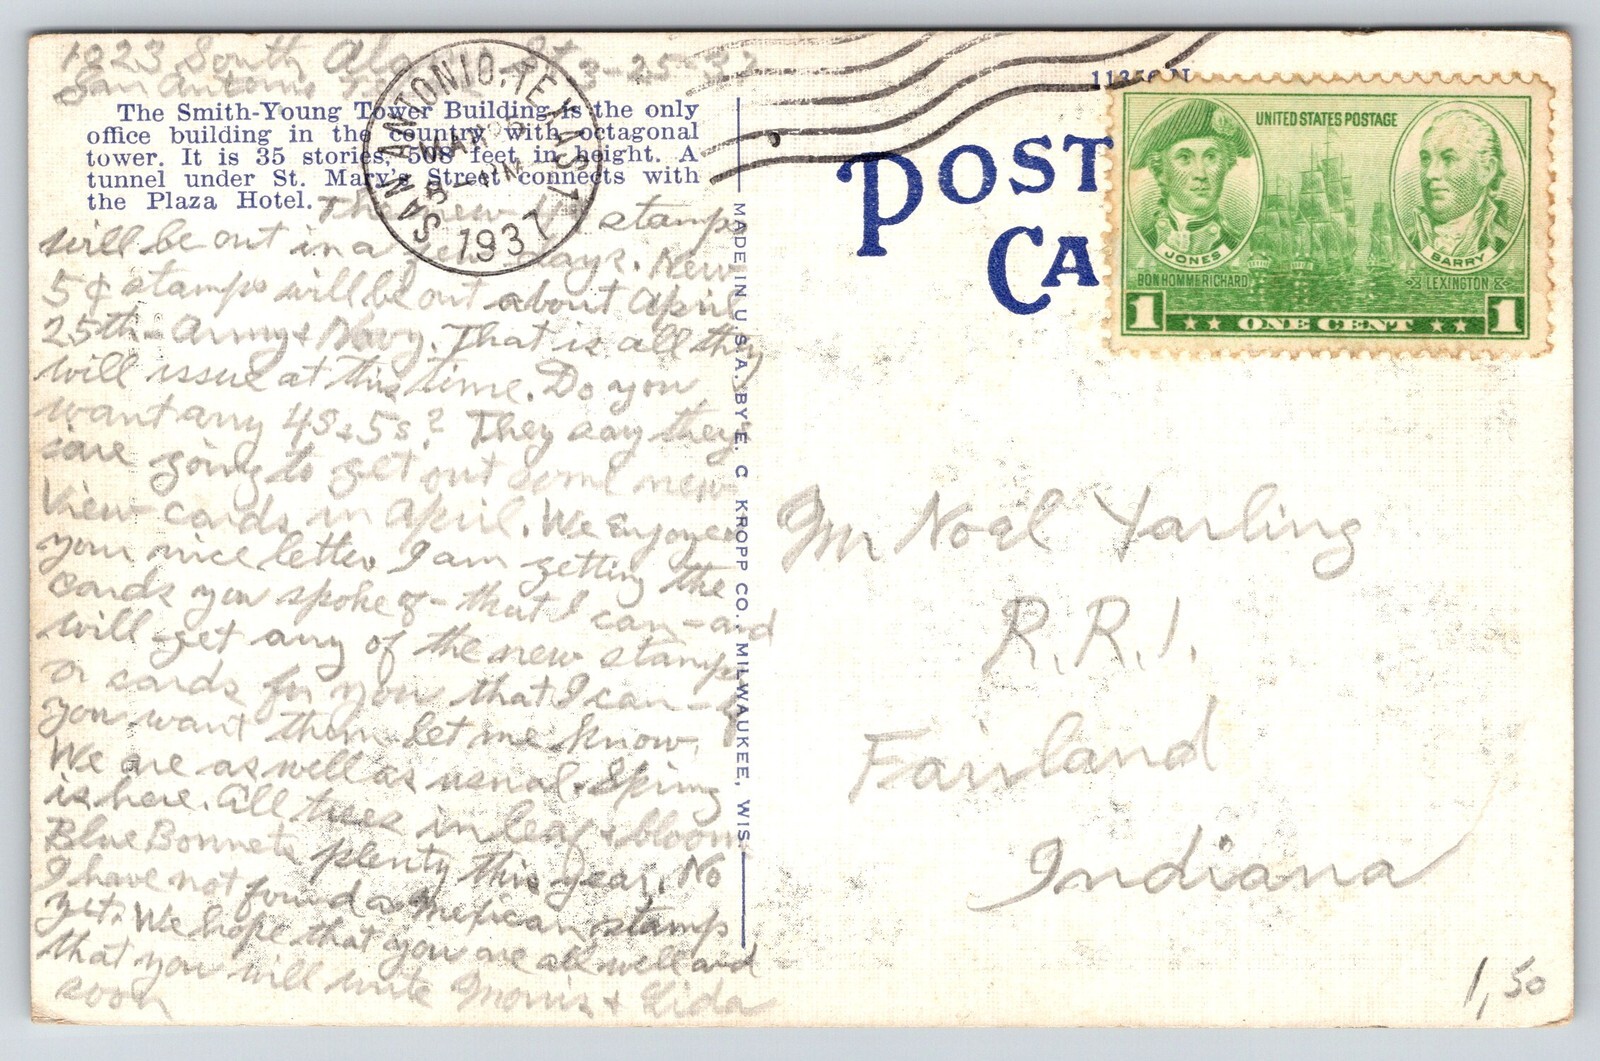 1023 South
San Antonio
3-25-37
The Smith-Young Tower Building is the only
office building in the country with octagonal
tower. It is 35 stories, 508 feet in height. A
tunnel under St. Mary's Street connects with
the Plaza Hotel.
The new stamps
will be out in a few days. New
5¢ stamps will be out about April
25th - Army & Navy. That is all they
will issue at this time. Do you
want any 4s & 5s? They say they
are going to get out some new
View cards in April. We enjoyed
your nice letter I am getting the
cards you spoke of - that I can - and
will get any of the new stamps
or cards for you that I can - if
you want them let me know.
We are as well as usual. Spring
is here. All trees in leaf & bloom
Blue Bonnets plenty this year. No
I have not found a Mexican stamps
yet. We hope that you are all well and
that you will write Morris & Lida
soon
SAN ANTONIO, TEXAS
MAR
5 PM
1937
MADE IN U.S.A. BY E. C. KROPP CO., MILWAUKEE, WIS.
POST
CA
UNITED STATES POSTAGE
JONES
BARRY
BON HOMME RICHARD
LEXINGTON
1 ONE CENT 1
Mr Noel Yarling
R.R.1.
Fairland
Indiana
1,50